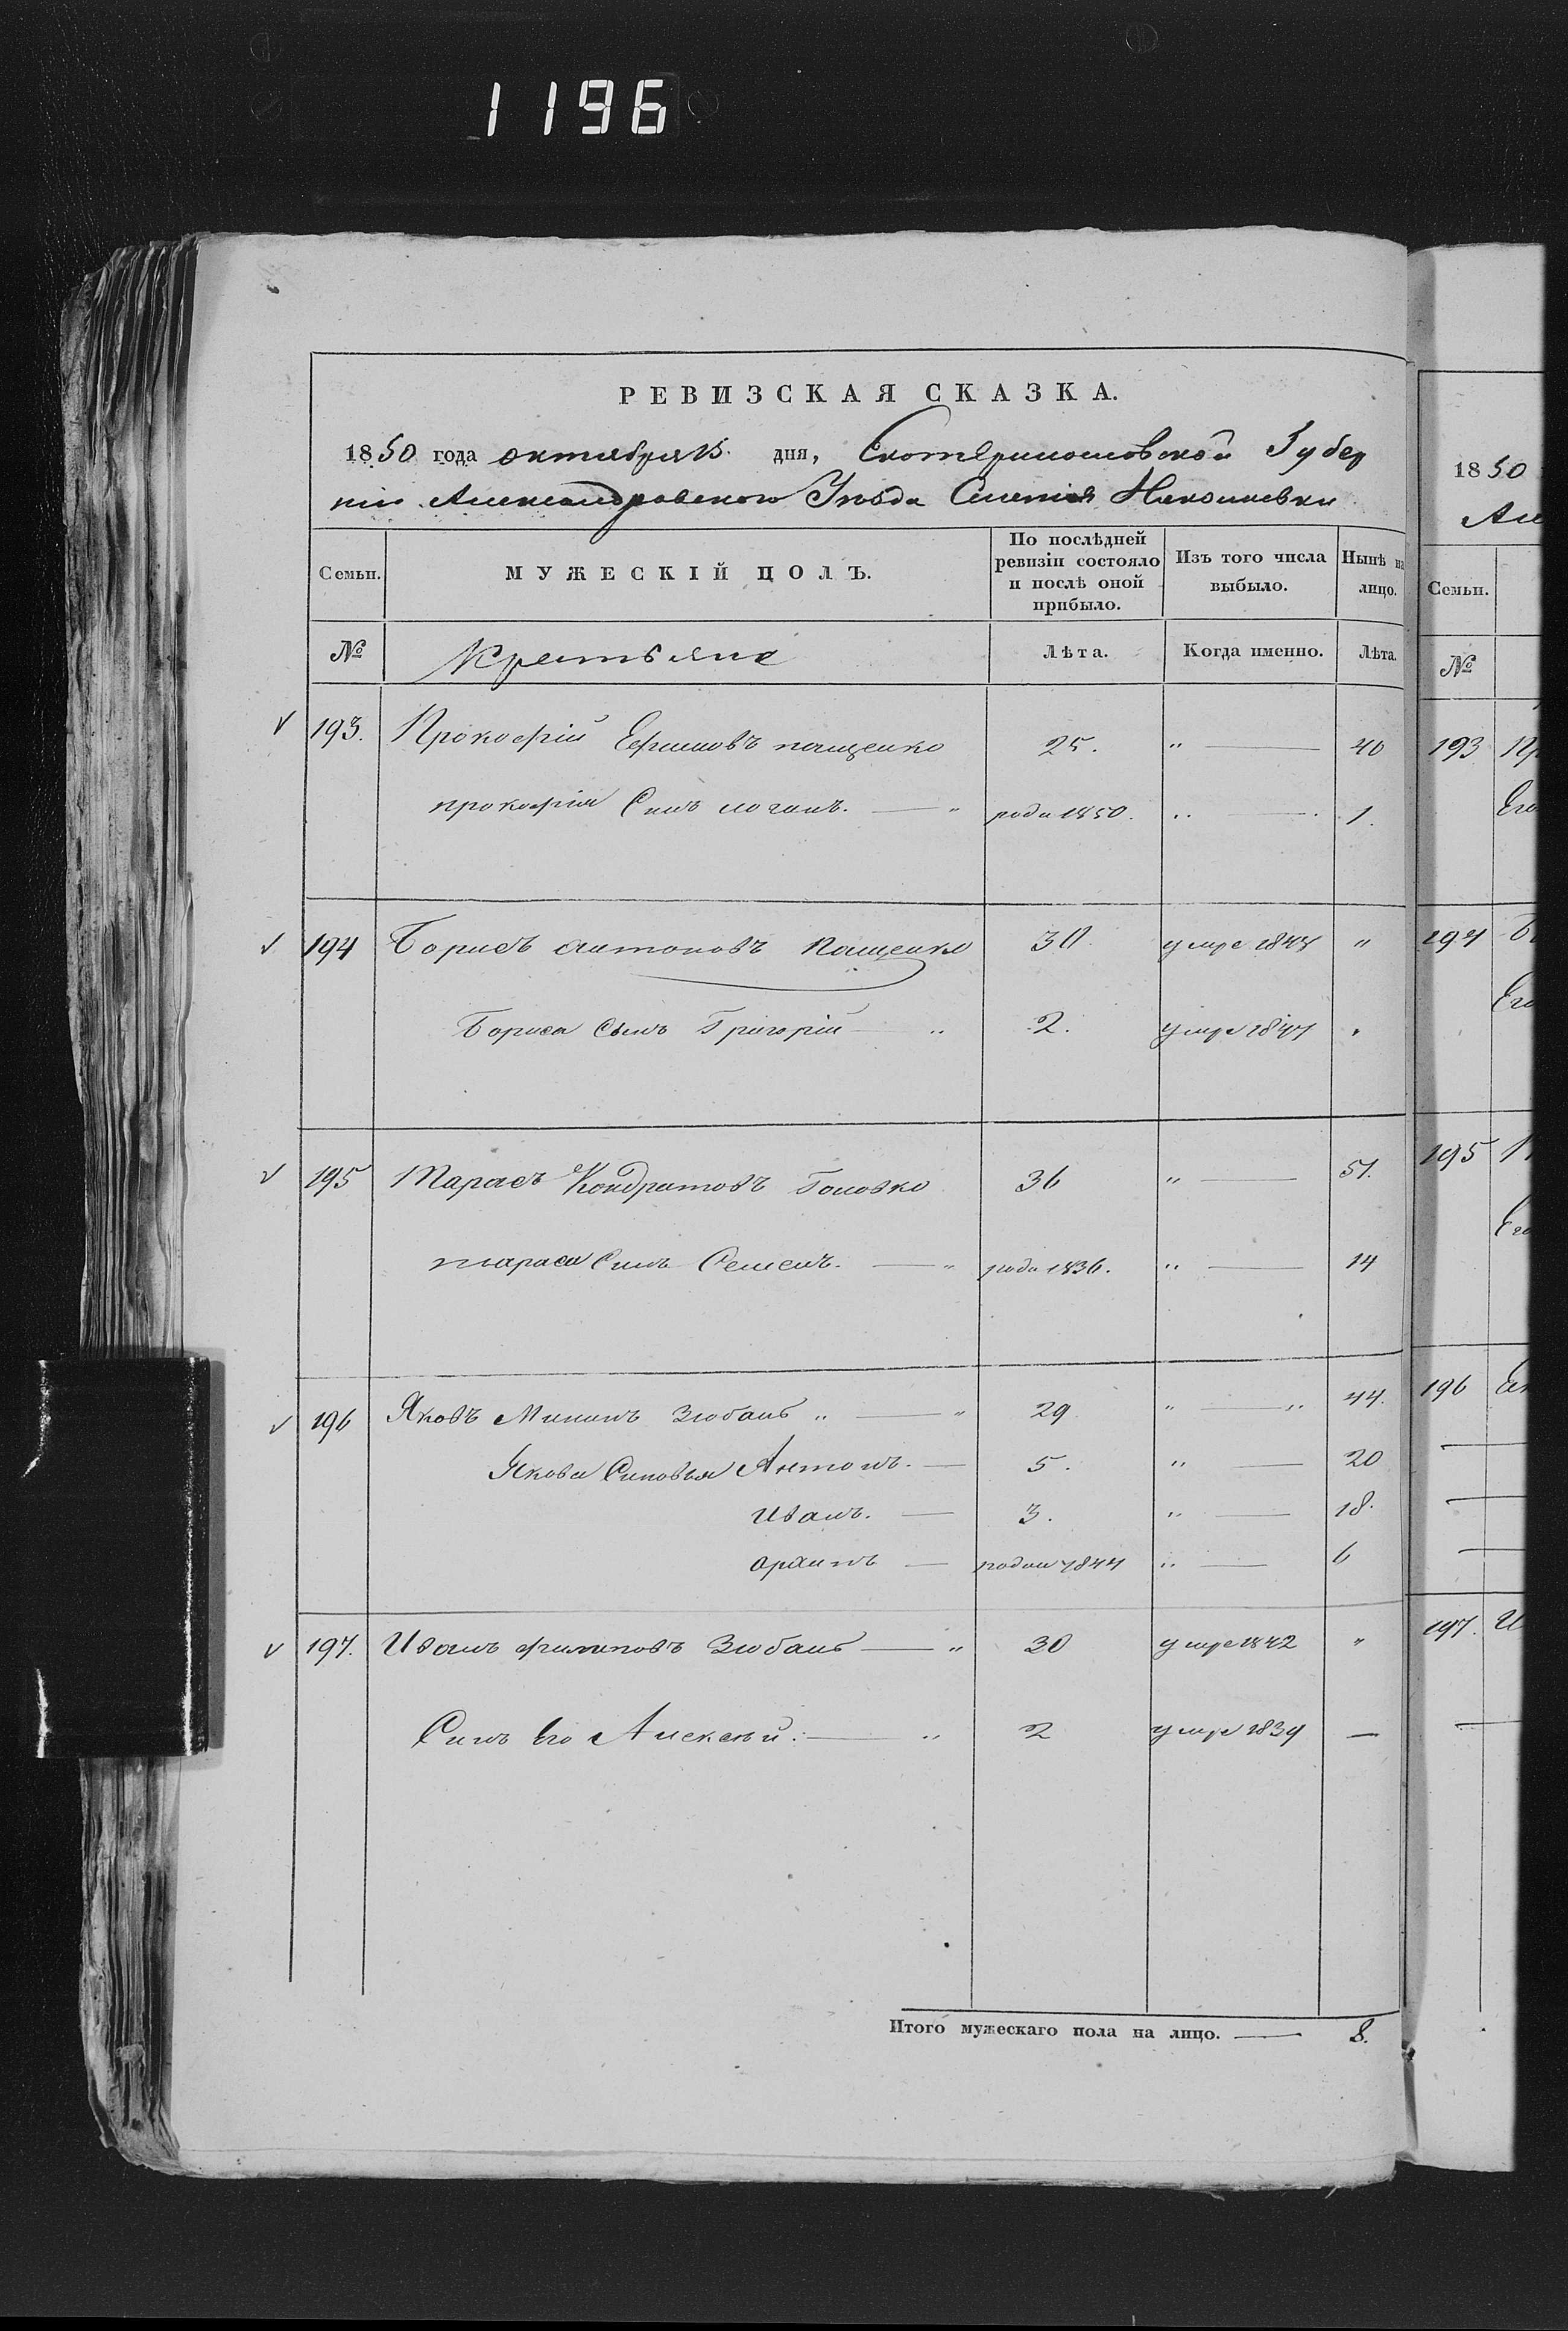 1196
РЕВИЗСКАЯ СКАЗКА.
1850 года октября 15 дня, Екатеринославской Губер
ніи Александровскаго Уѣзда Николаевки
Семьи. МУЖЕСКІЙ ПОЛЪ. По послѣдней ревизіи состояло и послѣ оной прибыло. Изъ того числа выбыло. Нынѣ на лицо.
№ Крестьяне Лѣта. Когда именно. Лѣта.
193. Прокофій Ефимовъ пащенко 25. " — 40
прокофія Синъ — " роди 1850. " — 1.
194 Борисъ антоновъ Пащенко 30 умре 1844 "
Бориса Сынъ Григорій — " 2. умре 1847 "
195 Тарасъ Кондратовъ Головко 36 " — 51.
тараса Синъ Семенъ. — " роди 1836. " — 14
196 Яковъ Мининъ Зюбанъ " — " 29 " — " 44.
Якова Синовья Антонъ. — 5. " — 20
Иванъ. — 3. " — 18.
архипъ — родил 1844 " — 6
197. Иванъ филиповъ Зюбанъ — " 30 умре 1842 "
Синъ Его Алексѣй: — " 2 умре 1839 —
Итого мужескаго пола на лицо. — 8.
1850
Але
Семьи.
№
193 Пр
Его
194 Б
Его
195
Его
196
197. И